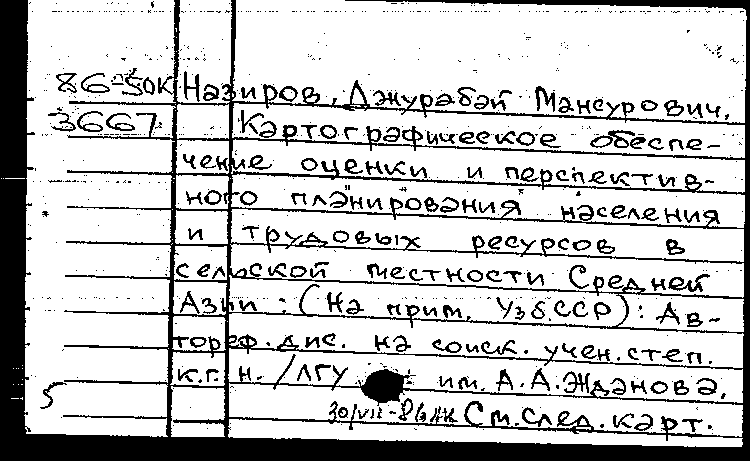 86-50K Назиров, Джурабай Мансурович.
3667 Картографическое обеспе-
чение оценки и перспектив-
ного планирования населения
и трудовых ресурсов в
сельской местности Средней
Азии : (На прим. УзбССР) : Ав-
тореф. дис. на соиск. учен. степ.
к.г.н. / ЛГУ им. А. А. Жданова.
5 30/VII-86 См. след. карт.